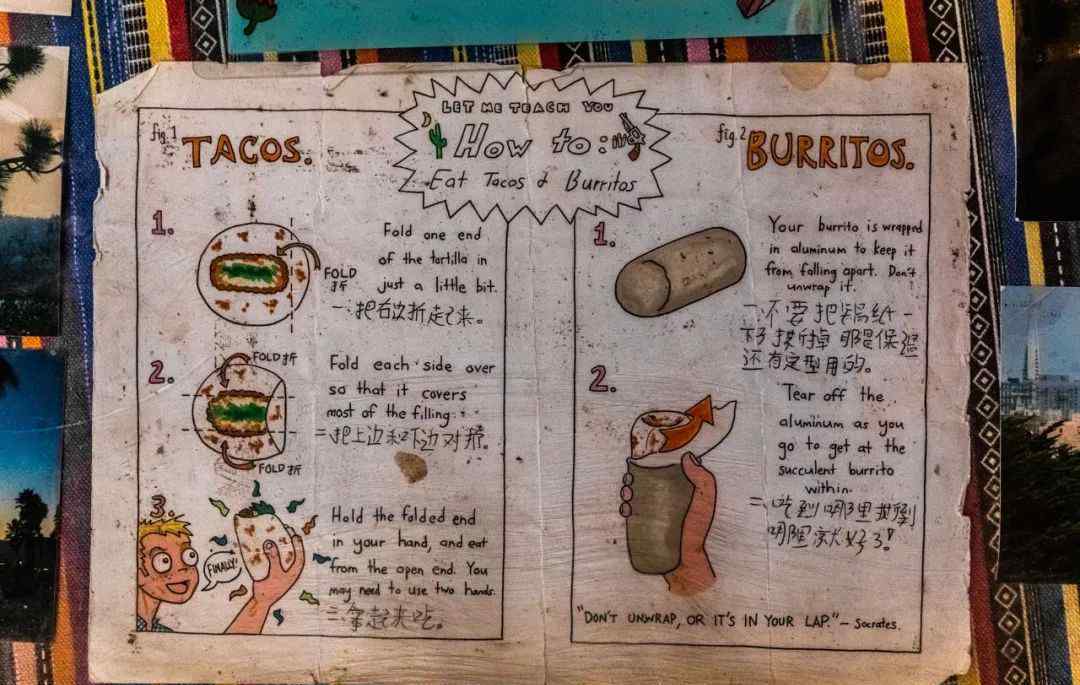 LET ME TEACH YOU
How to:
Eat Tacos & Burritos
fig. 1
TACOS.
1.
FOLD
折
Fold one end
of the tortilla in
just a little bit.
一:把右边折起来。
2.
FOLD 折
FOLD 折
Fold each side over
so that it covers
most of the filling.
二把上边和下边对折。
3.
FINALLY!
Hold the folded end
in your hand, and eat
from the open end. You
may need to use two hands.
三拿起来吃。
fig. 2
BURRITOS.
1.
Your burrito is wrapped
in aluminum to keep it
from falling apart. Don't
unwrap it.
不要把锡纸一
下子 掉 那是保温
还有定型用的。
2.
Tear off the
aluminum as you
go to get at the
succulent burrito
within.
二吃到哪里
哪里就好了!
"DON'T UNWRAP, OR IT'S IN YOUR LAP." – Socrates.